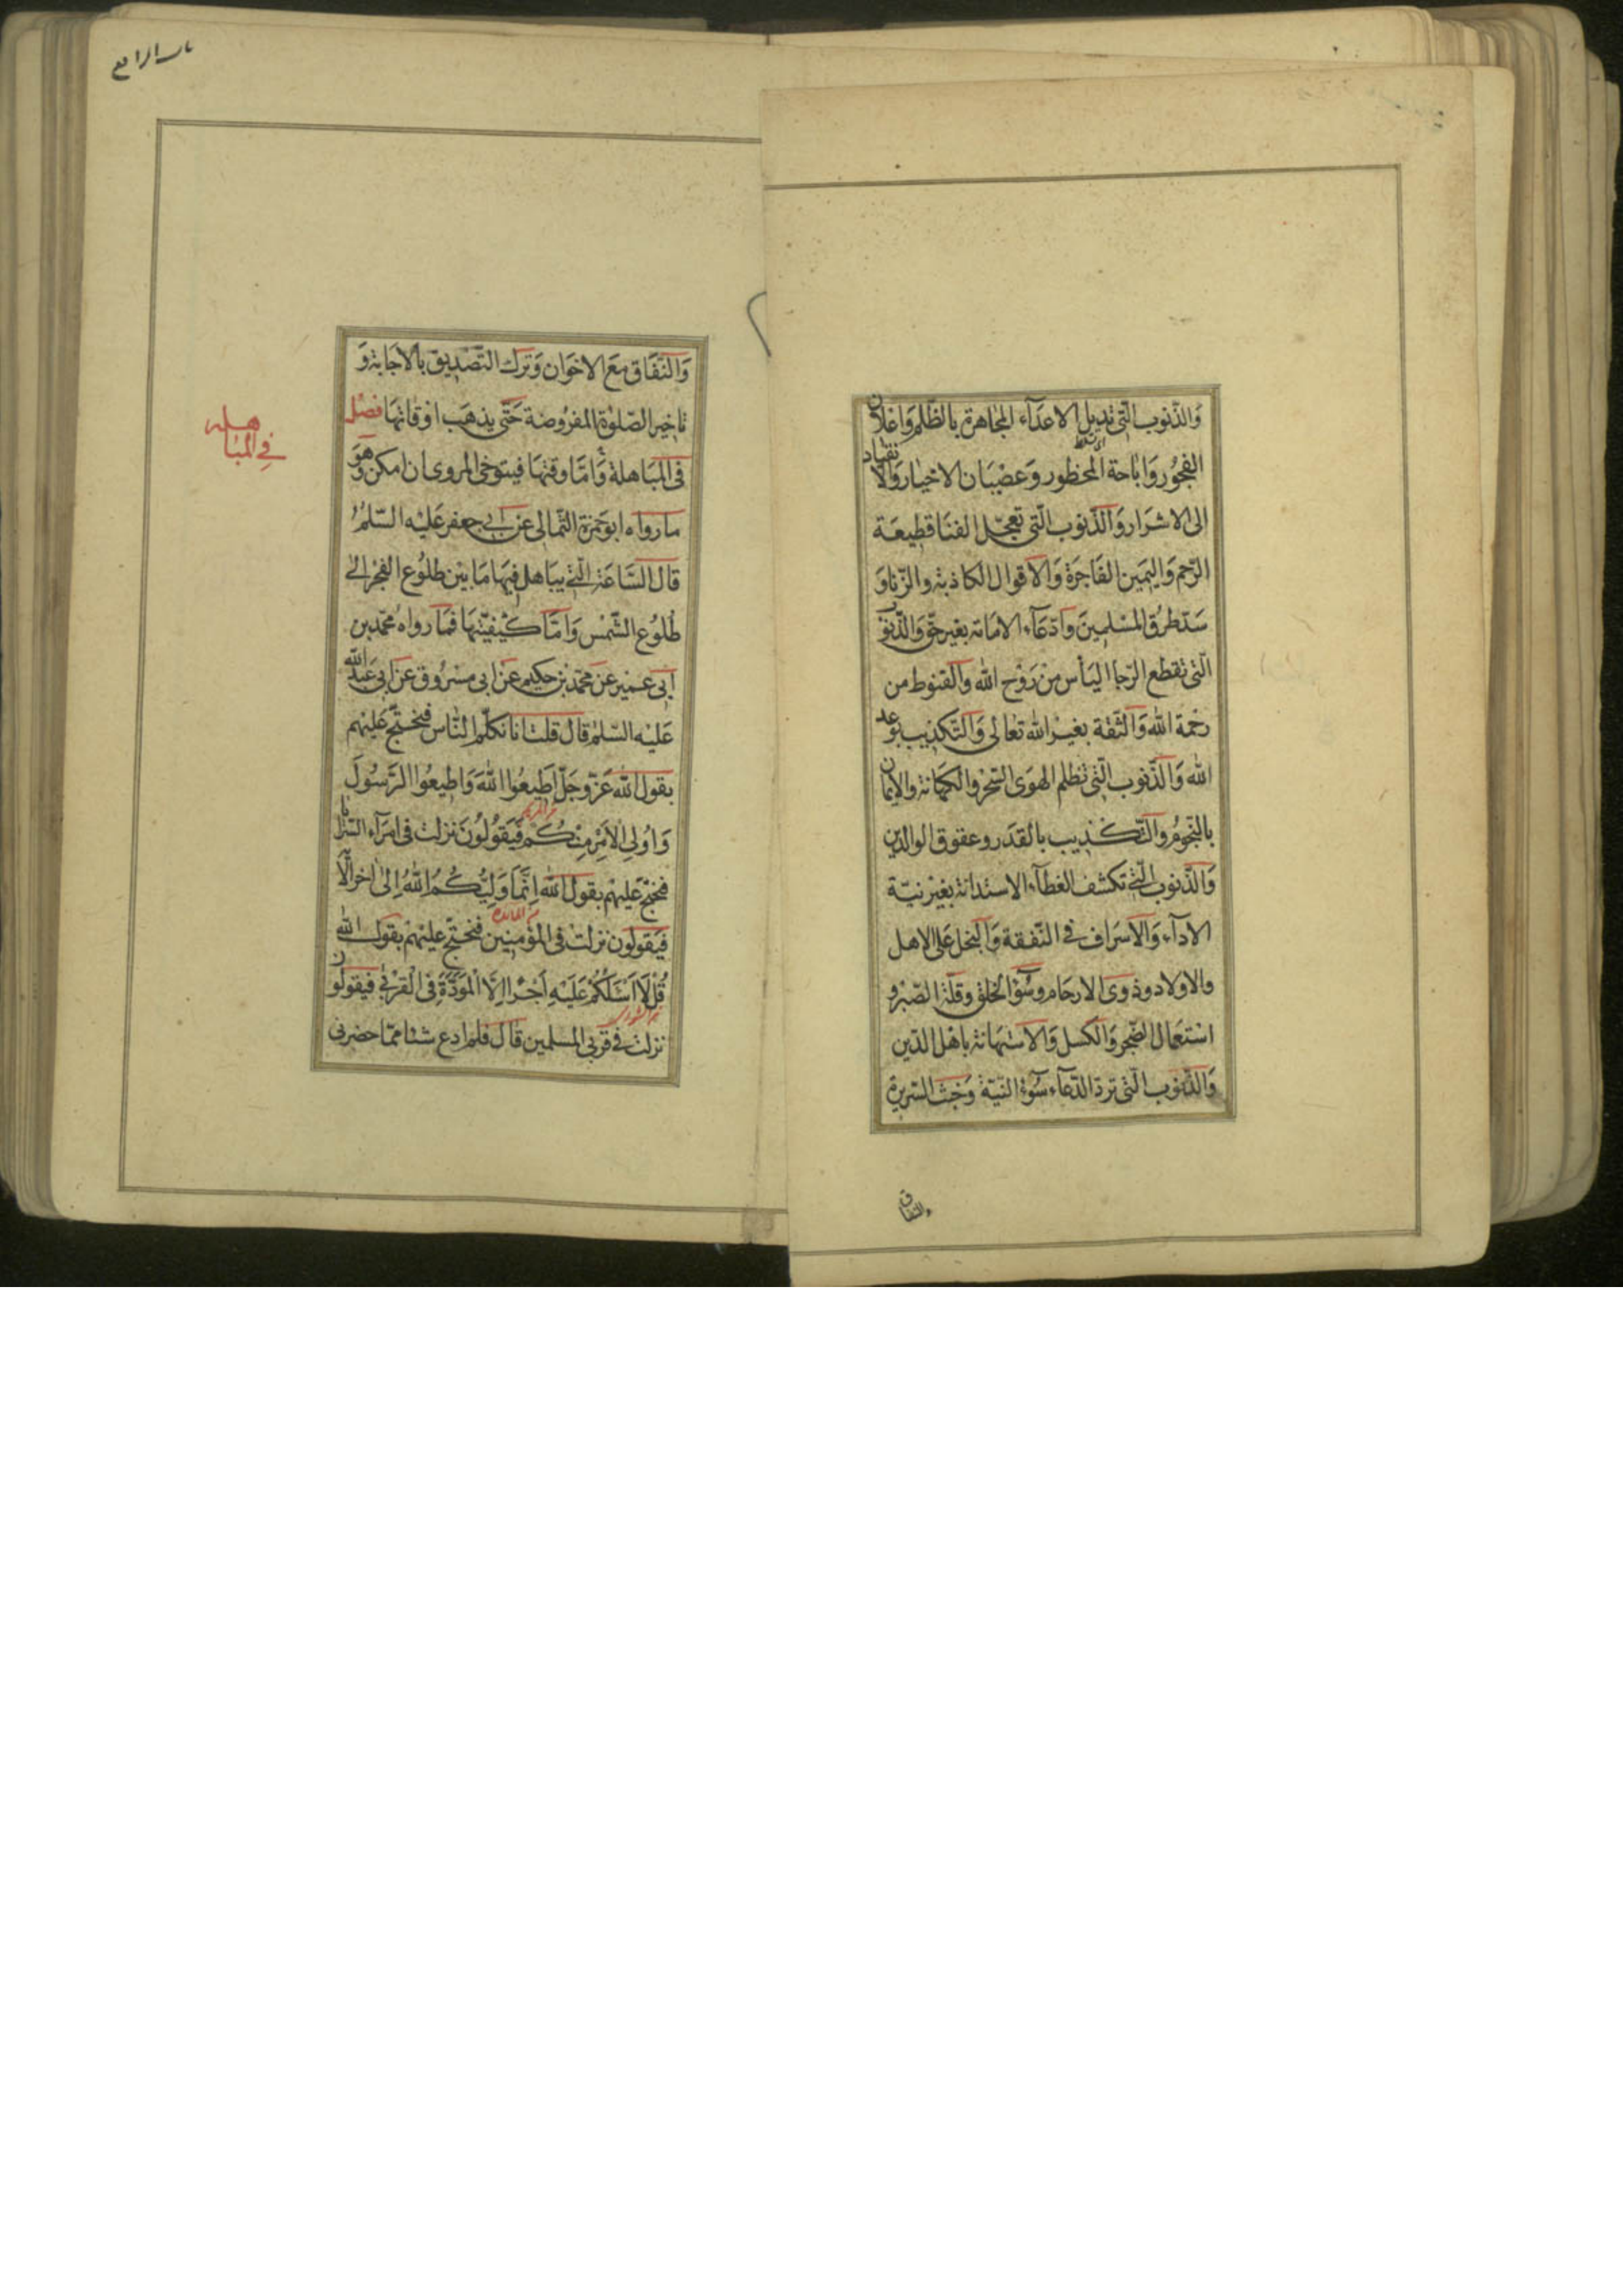 وَالذّنوب الّتى تديل الاعدآء المجاهرة بالظّلم وَاعلان
الفجُور وَاباحة المحظور وَعصْيَان الاخيار وَالانقياد
الى الاشرَار وَالذّنوب الّتى تعجّل الفنَا قطيعَة
الرّحم وَاليمَين الفَاجرَة وَالاقوال الكاذبة والزّنا وَ
سَدّ طرُق المسْلمِينَ وَادّعَآء الامَامة بغير حقّ وَالذّنوُ
الّتى تقطع الرّجا اليَأس منْ رَوْح الله وَالقنوط من
رحْمة الله وَالثّقة بغيْر الله تعالى وَالتّكذيب بوَعد
الله وَالذّنوب الّتى تظلم الهوَى السّحْر والكهَانة والايمان
بالنّجوُم وَالتّكذيب بالقدَر وعقوق الوالدين
وَالذّنوب الّتى تكشف الغطآء الاستدانة بغيْر نيّة
الادآء وَالاسرَاف فى النّفقة وَالبخل عَلى الاهل
والاولاد وذوى الارحَام وسُوْ الخلق وقلّة الصّبْر و
استعمال الضّجر وَالكسل وَالاستهَانة باهْل الدّين
وَالذّنوب الّتى تردّ الدّعآء سُوۤء النيّة وَخبْث السّريرة
والنفاق
الرابع
وَالنّفَاق مَع الاخوَان وَترك التّصْديق بالاجَابة وَ
تاخير الصّلوٰة المفروُضة حَتّى يذهَب اوْقاتهَا فصْل
فى المبَاهلة وَامّا وقتهَا فيتوخى المروى ان امكن وَهوَ
مارواه ابوحَمزة الثّمالى عنْ ابى جعفر عَليْه السّلمُ
قال السّاعَة الّتى يبَاهل فيهَا مَا بيْن طلوُع الفجْر الىٰ
طُلوُع الشّمْس وَامّا كيْفيّتهَا فمَا روَاهُ محمّد بن
ابى عمير عَن محمّد بْن حكيم عَنْ ابى مسْروُق عَنْ ابى عَبْد الله
عَليْه السّلمُ قال قلت انا نكلّم النّاس فنحْتجّ عَليْهم
بقول الله عَزّ وجَلّ اَطيعُوا اللهَ وَاَطيعُوا الرَّسُولَ
وَاُولِى الاَمْرِ مِنْكُم فيَقوُلوُنَ نزلت فى امرَآء السّرايا
فنحْتجّ عَليْهم بقول الله اِنَّمَا وَلِيُّكُمُ اللهُ اِلىٰ اٰخر الآية
فيَقولون نزلت فى المؤمنيْن فنحْتجّ عليْهم بقول الله
قُلْ لَا اَسْئَلُكُمْ عَلَيْهِ اَجْرًا اِلَّا الْمَوَدَّةَ فِى الْقُرْبىٰ فيقولون
نزلت فى قربى المسلمين قال فلم ادع شئا ممّا حضرنى
فى المباهله